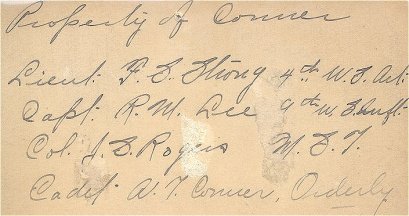 Property of Conner
Lieut. F. S. Strong 4th U.S. Art.
Capt. R. M. Lee 9th U.S. Inft.
Col. J. D. Rogers M.S.T.
Cadet A. T. Conner, Orderly